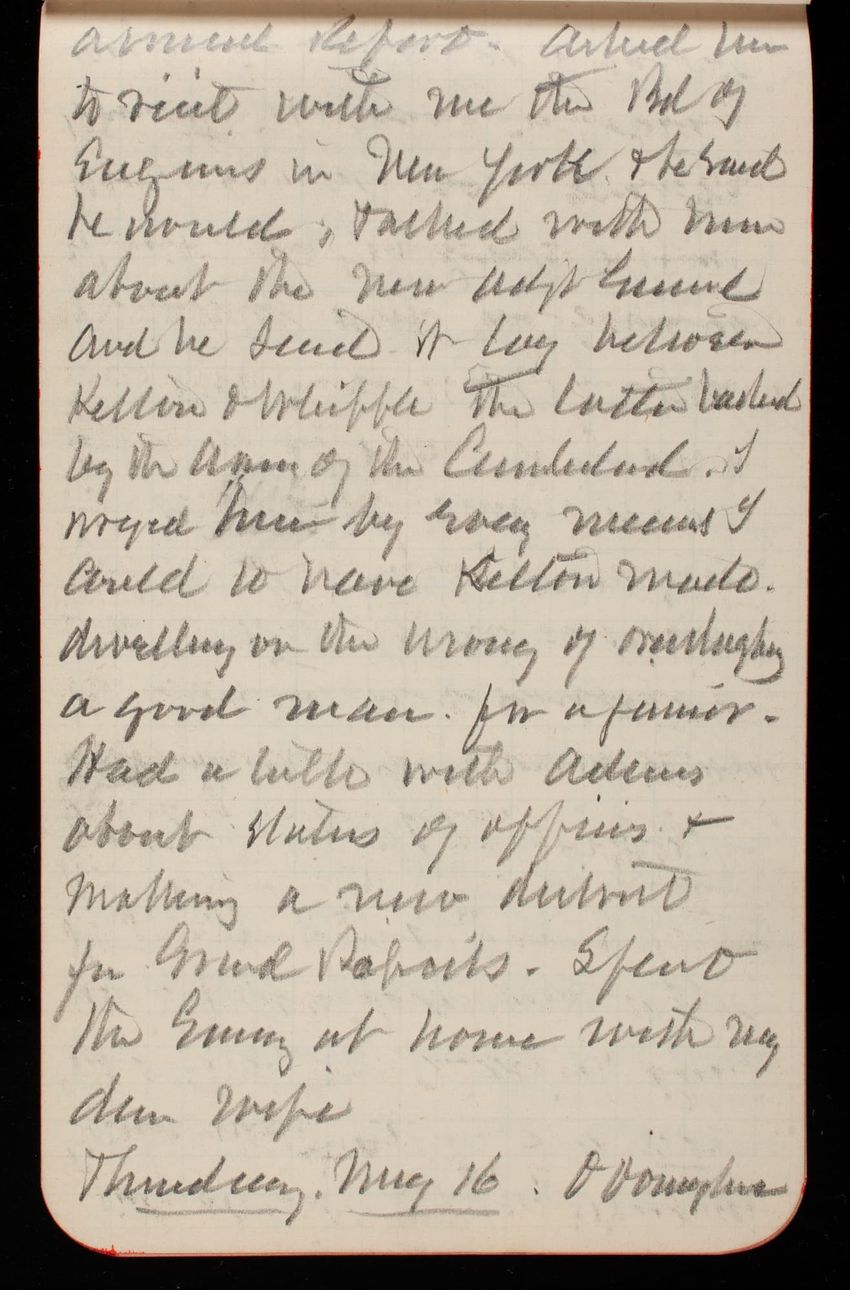 annual Report. Asked him
to visit with me the Bd of
Engineers in New York & he said
he would, talked with him
about the new Adjt General
and he said it lay between
Kelton & Whipple the latter backed
by the Army of the Cumberland. I
urged him by every means I
could to have Kelton made.
dwelling on the wrong of overslaughing
a good man. for a junior.
Had a talk with Adams
about status of offices &
making a new district
for Grand Rapids. Spent
the Evening at home with my
dear wife
Thursday. May 16. O Donaghue